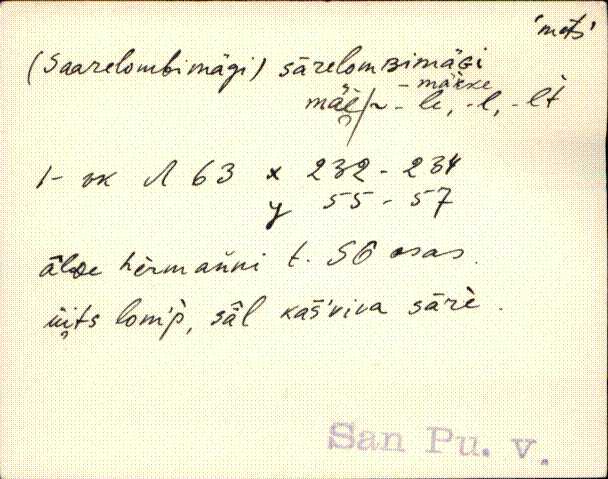 'mets'
(Saarelombimägi) särelomʙimägi
-märke
mäe̬/~ - le, -l, -lt
1- vk Л 63 x 232 - 234
y 55 - 57
hèrmanni t. S6 osas.
üits lom'p̀, säl kaśviva särè.
San Pu. v.